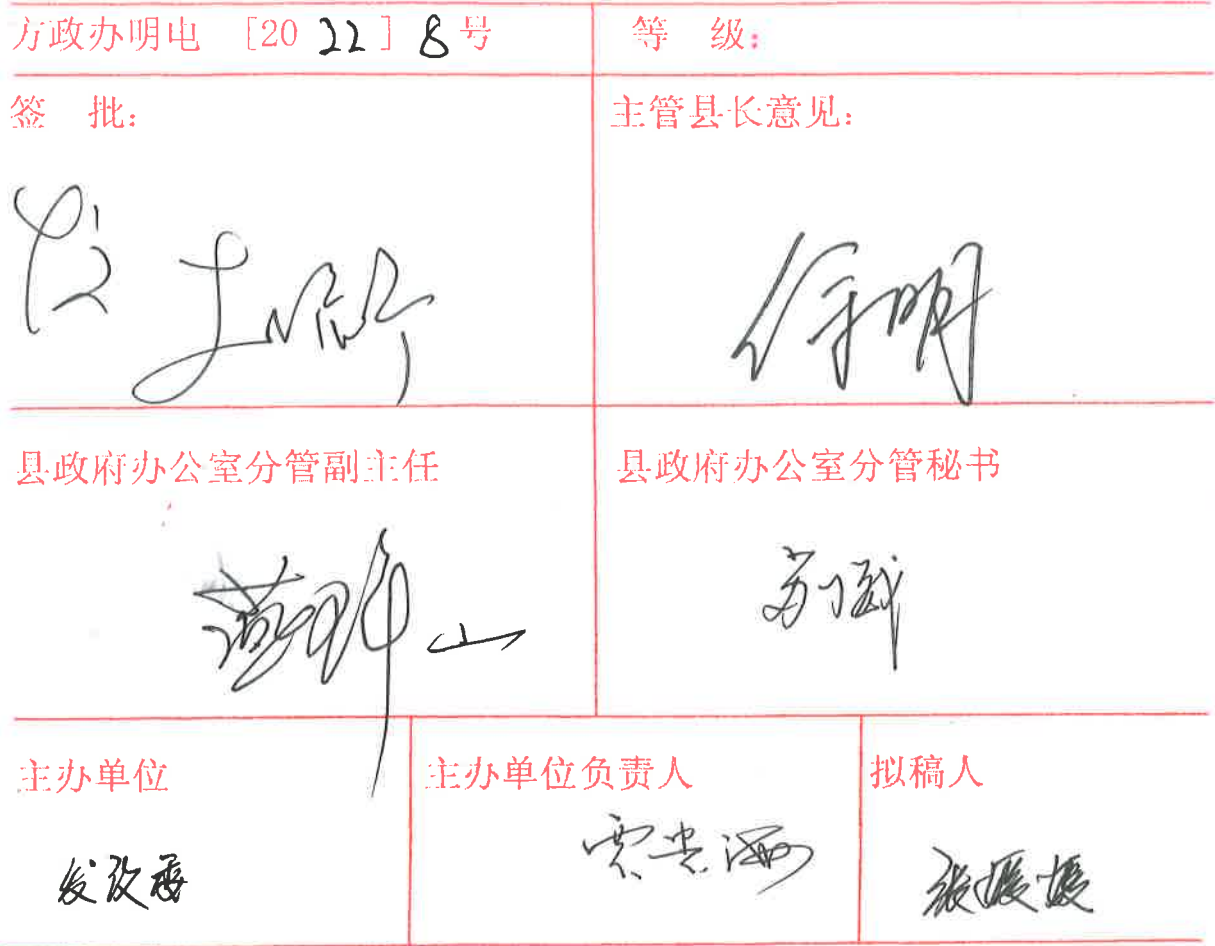 方政办明电 [2022] 8号
等 级:
签 批:
主管县长意见:
县政府办公室分管副主任
县政府办公室分管秘书
主办单位
主办单位负责人
拟稿人
发改委
张媛媛